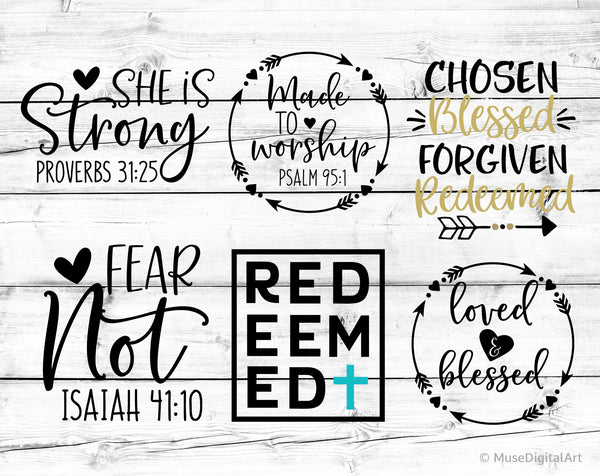 SHE iS
Strong
PROVERBS 31:25
Made
TO
worship
PSALM 95:1
CHOSEN
Blessed
FORGIVEN
Redeemed
FEAR
Not
ISAIAH 41:10
RED
EEM
ED
loved
&
blessed
© MuseDigitalArt